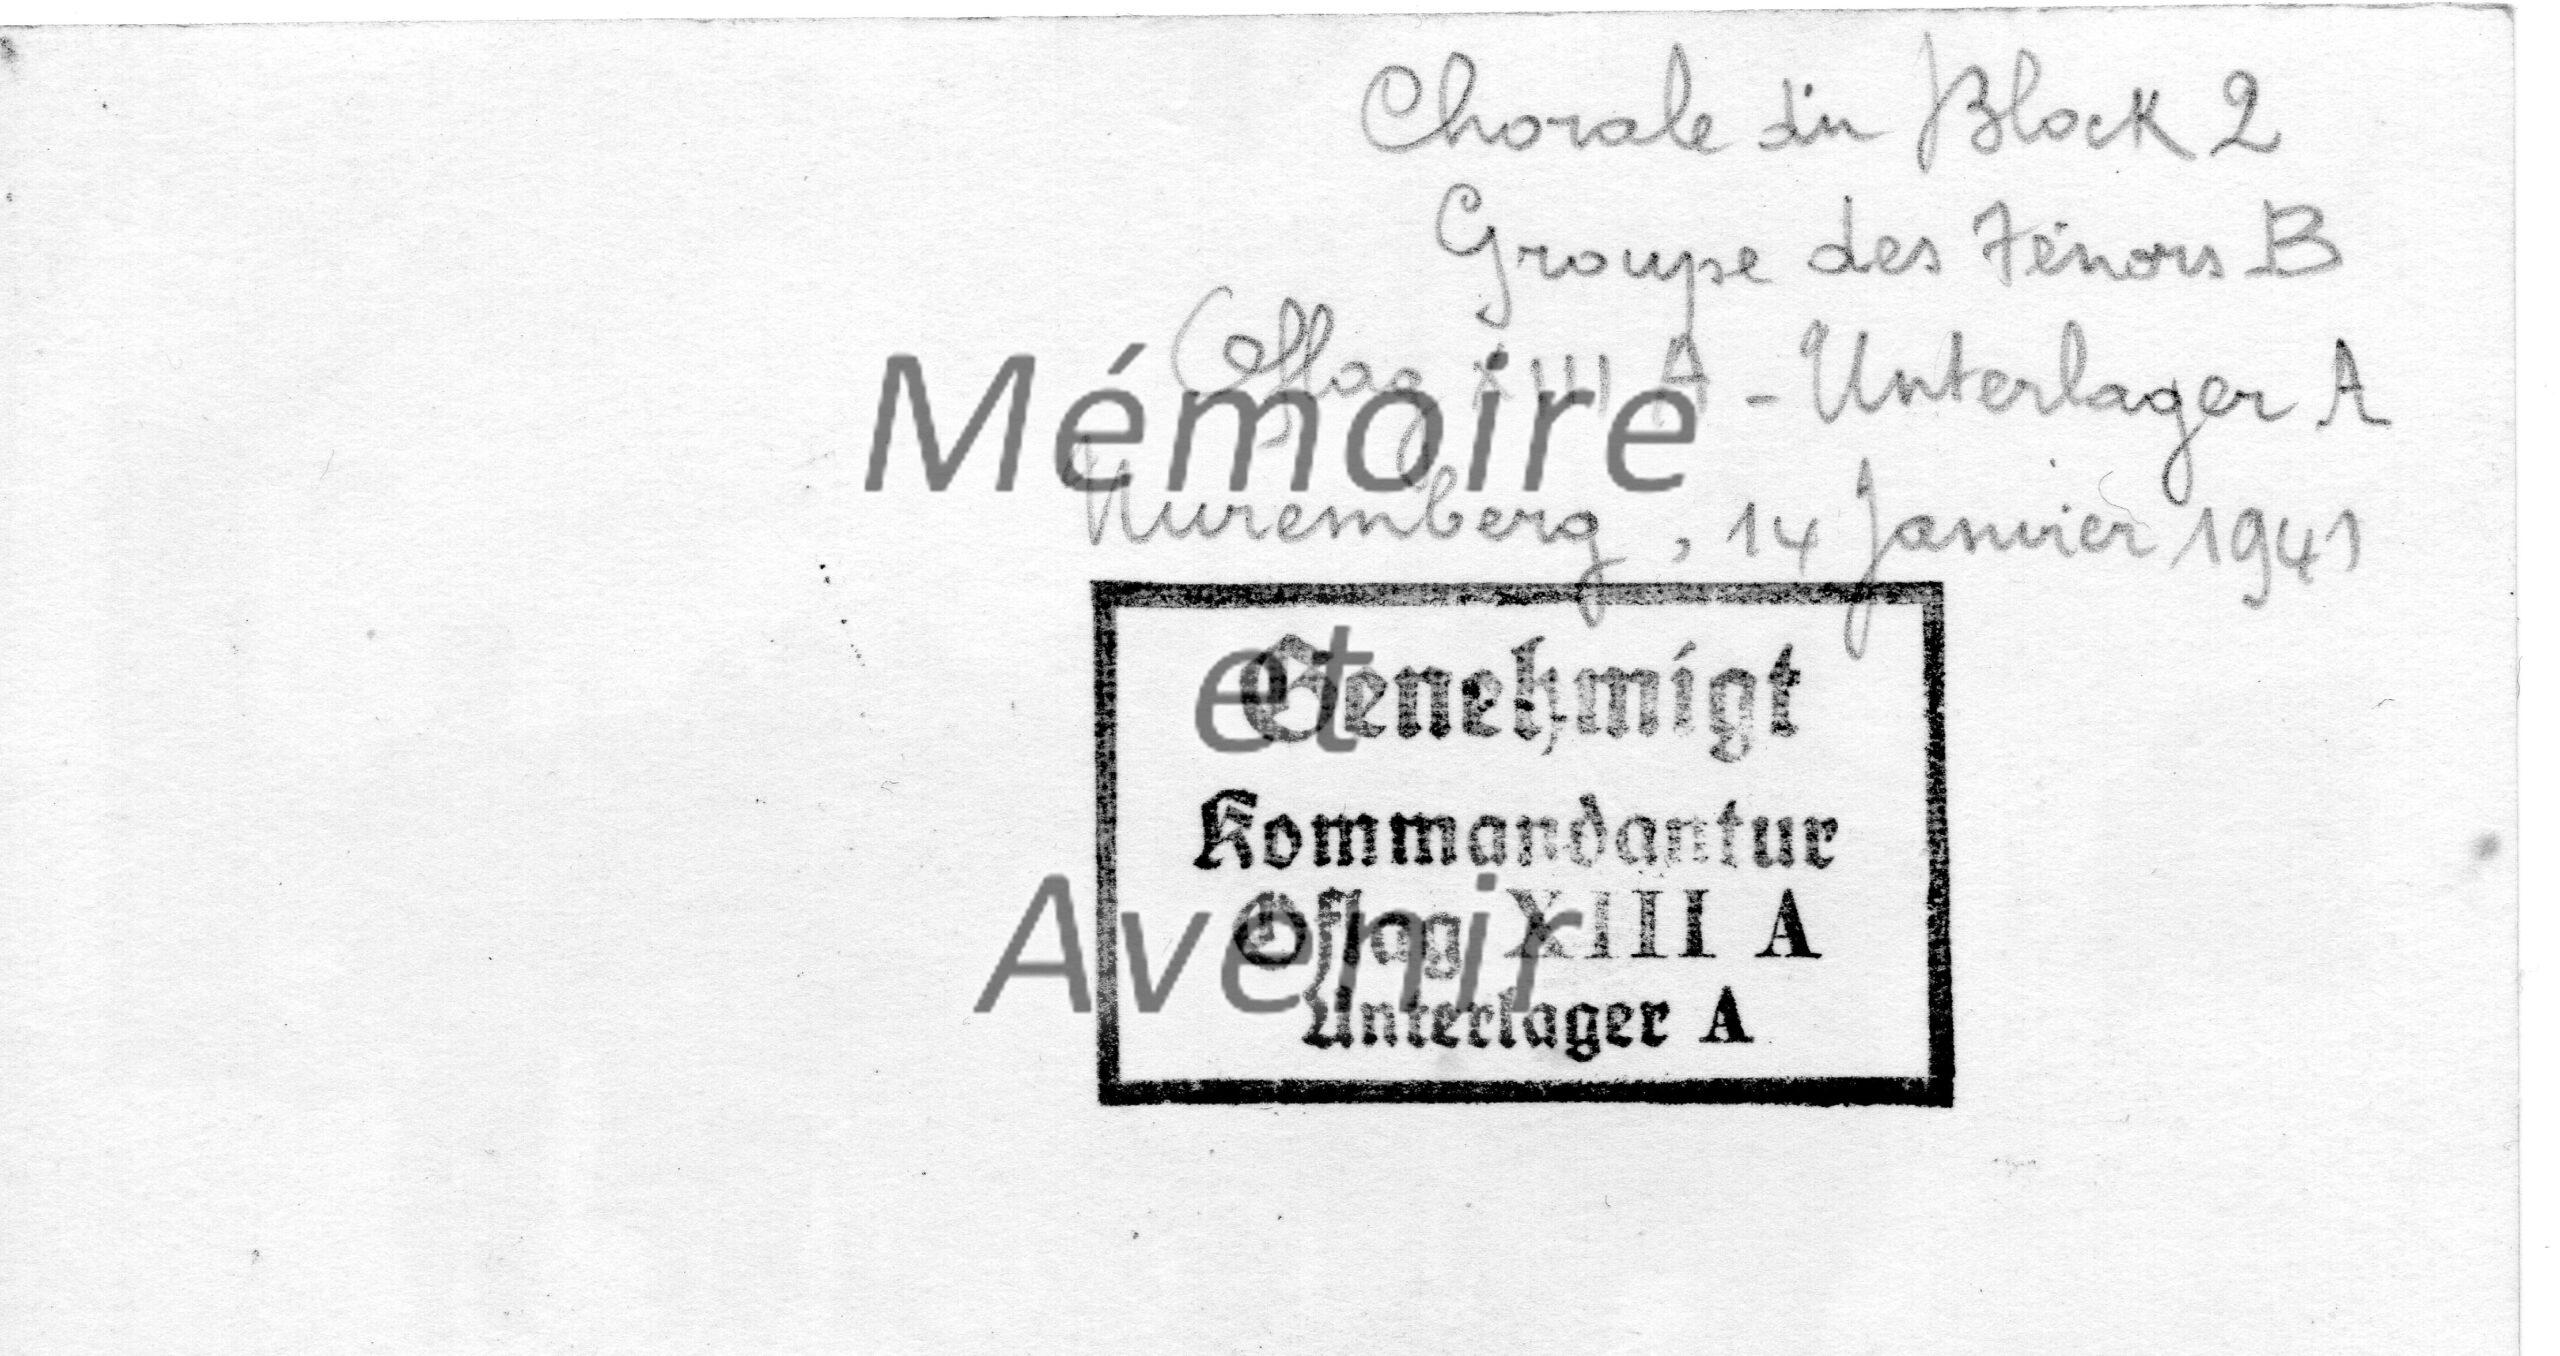 Chorale du Block 2
Groupe des Ténors B
Oflag XIII A - Unterlager A
Nuremberg, 14 Janvier 1941
Mémoire
et
Avenir
Genehmigt
Kommandantur
Oflag XIII A
Unterlager A